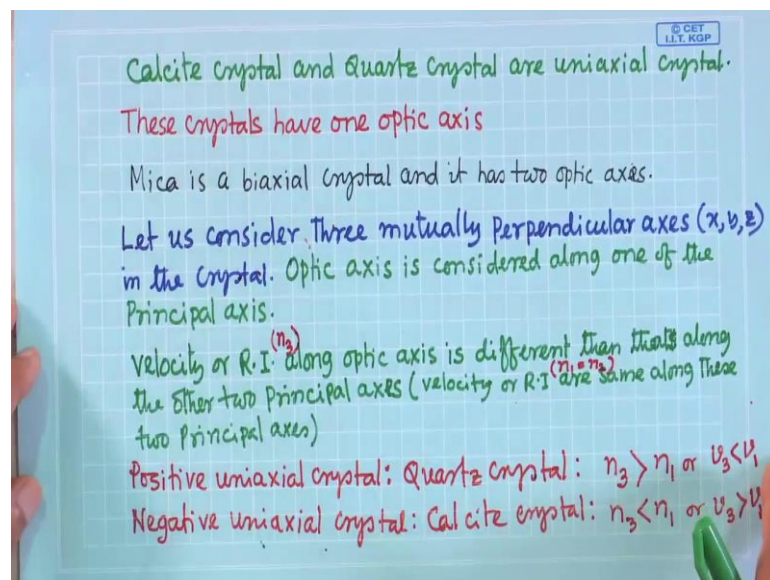 © CET
I.I.T. KGP
Calcite crystal and Quartz crystal are uniaxial crystal.
These crystals have one optic axis
Mica is a biaxial crystal and it has two optic axes.
Let us consider Three mutually perpendicular axes (x,y,z)
in the crystal. Optic axis is considered along one of the
Principal axis.
velocity or R.I. (n₃) along optic axis is different than that along
the other two principal axes (velocity or R.I (n₁=n₂) are same along These
two principal axes)
Positive uniaxial crystal: Quartz crystal: n₃ > n₁ or v₃ < v₁
Negative uniaxial crystal: Calcite crystal: n₃ < n₁ or v₃ > v₁